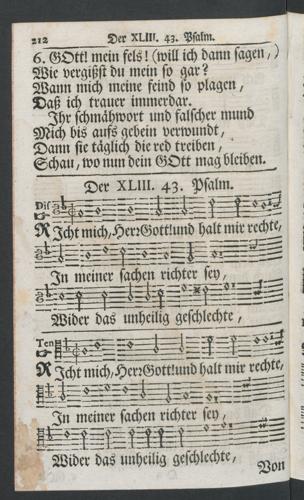 212 Der XLIII. 43. Psalm.
6. GOtt! mein fels! (will ich dann sagen,)
Wie vergißst du mein so gar?
Wann mich meine feind so plagen,
Daß ich trauer immerdar.
Ihr schmähwort und falscher mund
Mich bis aufs gebein verwundt,
Dann sie täglich die red treiben,
Schau, wo nun dein GOtt mag bleiben.
Der XLIII. 43. Psalm.
Dis
RIcht mich, Herr Gott! und halt mir rechte,
In meiner sachen richter sey,
Wider das unheilig geschlechte,
Ten
RIcht mich, Herr Gott! und halt mir rechte,
In meiner sachen richter sey,
Wider das unheilig geschlechte,
Von